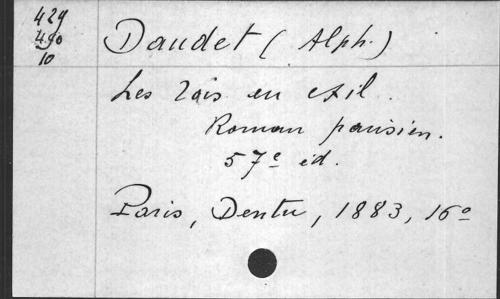 429
490
10
Daudet (Alph.)
Les rois en exil.
Roman parisien.
57e éd.
Paris, Dentu, 1883, 16o